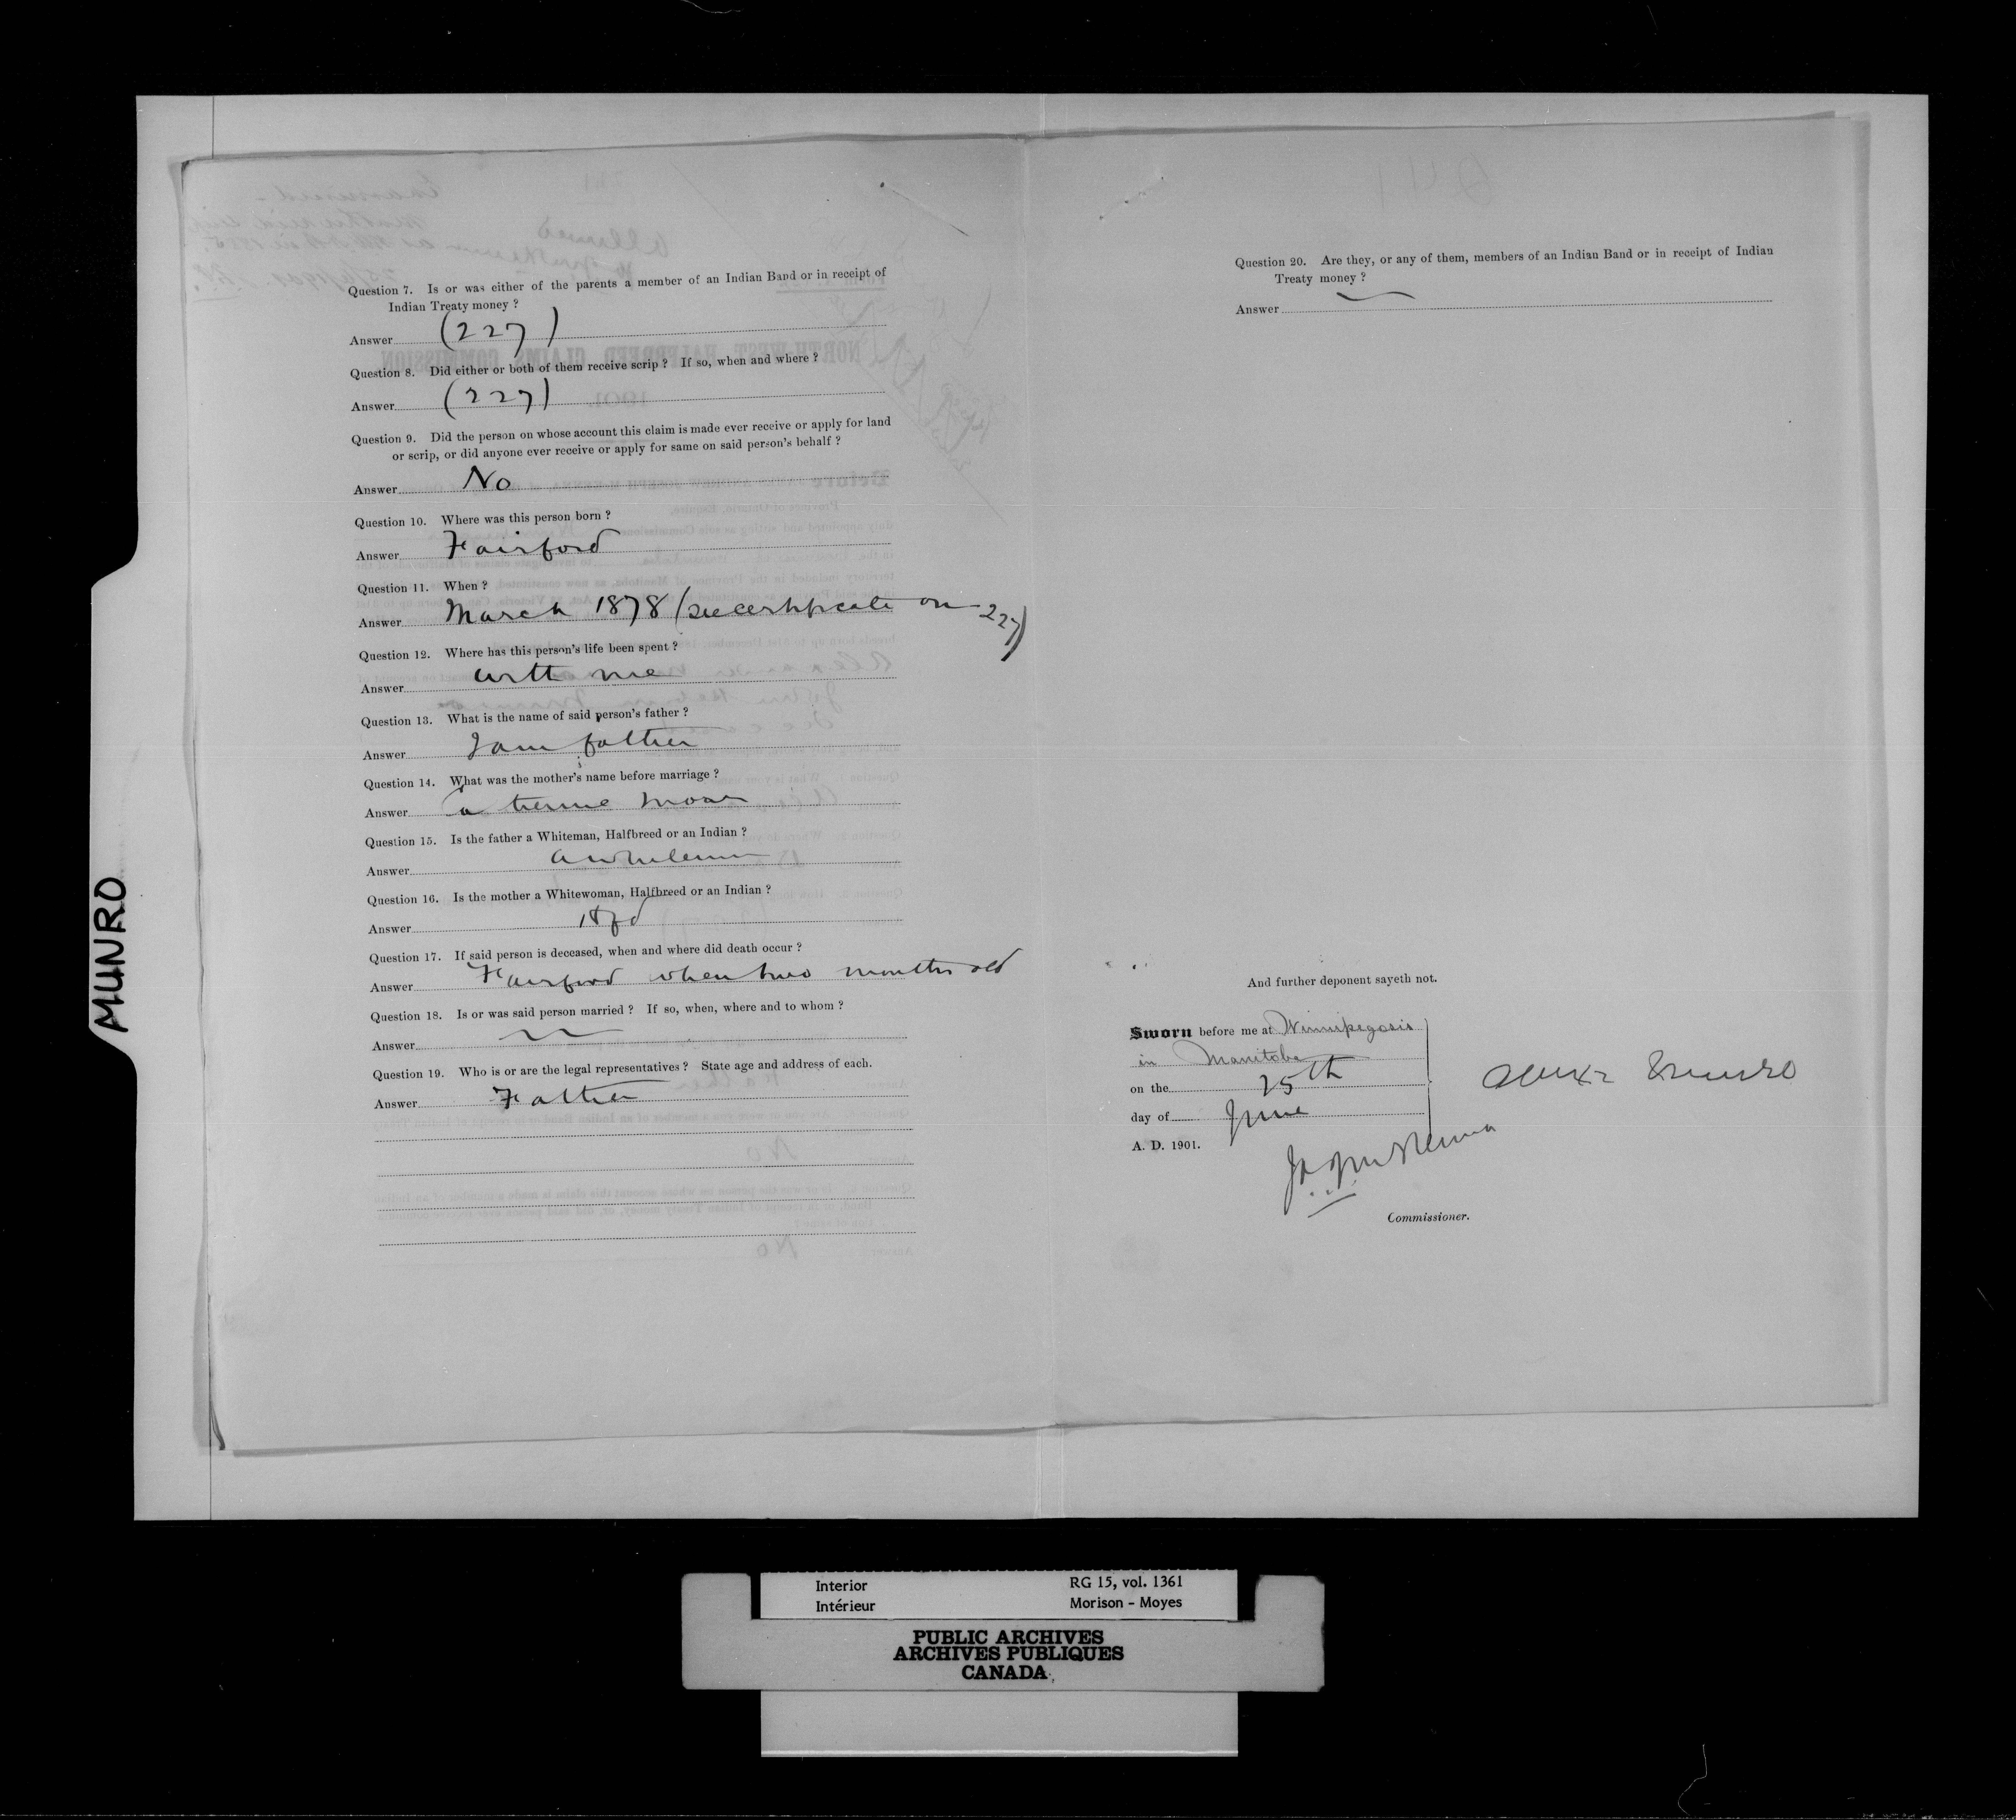 Question 7. Is or was either of the parents a member of an Indian Band or in receipt of
Indian Treaty money ?
Answer (227)
Question 8. Did either or both of them receive scrip ? If so, when and where ?
Answer (227)
Question 9. Did the person on whose account this claim is made ever receive or apply for land
or scrip, or did anyone ever receive or apply for same on said person's behalf ?
Answer No
Question 10. Where was this person born ?
Answer Fairford
Question 11. When ?
Answer March 1878 (see certificate on 227)
Question 12. Where has this person's life been spent ?
Answer with me
Question 13. What is the name of said person's father ?
Answer I am father
Question 14. What was the mother's name before marriage ?
Answer Catherine Moar
Question 15. Is the father a Whiteman, Halfbreed or an Indian ?
Answer a whiteman
Question 16. Is the mother a Whitewoman, Halfbreed or an Indian ?
Answer
Question 17. If said person is deceased, when and where did death occur ?
Answer Fairford when two months old
Question 18. Is or was said person married ? If so, when, where and to whom ?
Answer
Question 19. Who is or are the legal representatives ? State age and address of each.
Answer Father
Question 20. Are they, or any of them, members of an Indian Band or in receipt of Indian
Treaty money ?
Answer
And further deponent sayeth not.
Sworn before me at Winnipegosis
in Manitoba
on the 25th
day of June
A. D. 1901.
Alexr Munro
Commissioner.
MUNRO
Interior RG 15, vol. 1361
Intérieur Morison - Moyes
PUBLIC ARCHIVES
ARCHIVES PUBLIQUES
CANADA